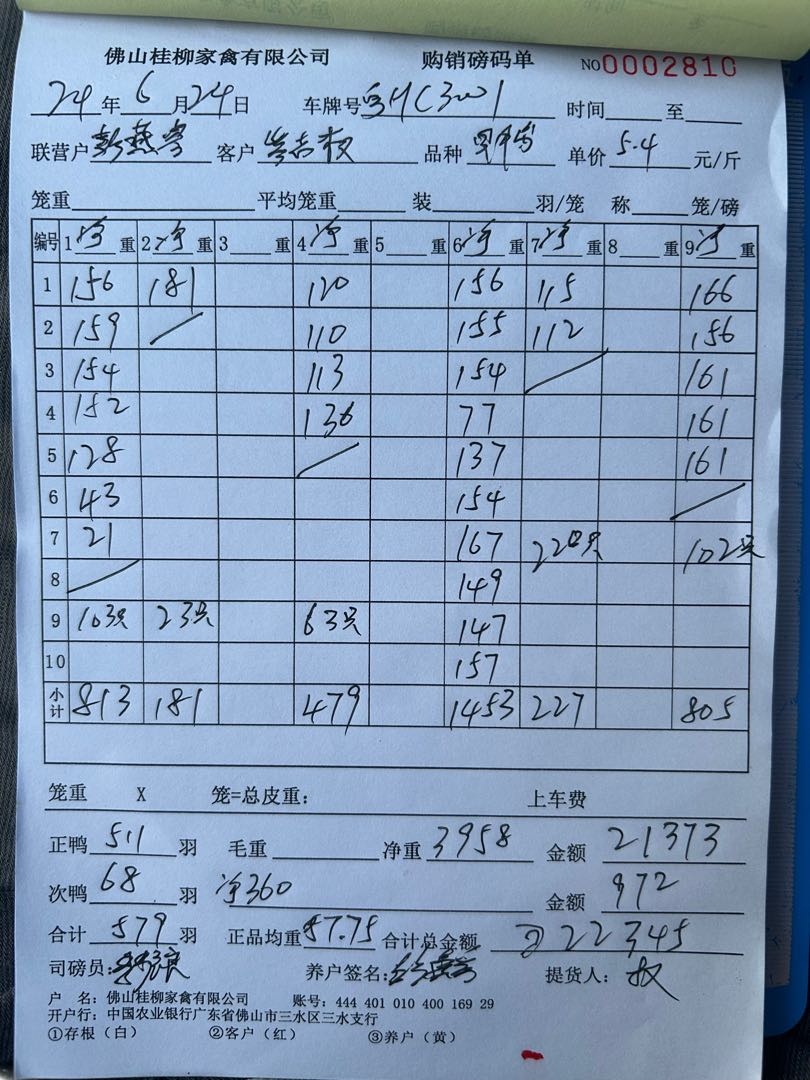 佛山桂柳家禽有限公司 购销磅码单 NO0002810
24年6月24日 车牌号 时间 至
联营户 客户 品种 单价 5.4 元/斤
笼重 平均笼重 装 羽/笼 称 笼/磅
编号 1净重 2净重 3 重 4净重 5 重 6净重 7净重 8 重 9净重
1 156 181 120 156 115 166
2 159 110 155 112 156
3 154 113 154 161
4 152 136 77 161
5 128 137 161
6 43 154
7 21 167 220只 102只
8 149
9 103只 23只 63只 147
10 157
小计 813 181 479 1453 227 805
笼重 X 笼=总皮重: 上车费
正鸭 511 羽 毛重 净重 3958 金额 21373
次鸭 68 羽 净360 金额 972
合计 579 羽 正品均重 7.75 合计总金额 22345
司磅员: 养户签名: 提货人: 权
户 名: 佛山桂柳家禽有限公司 账号: 444 401 010 400 169 29
开户行: 中国农业银行广东省佛山市三水区三水支行
①存根(白) ②客户(红) ③养户(黄)